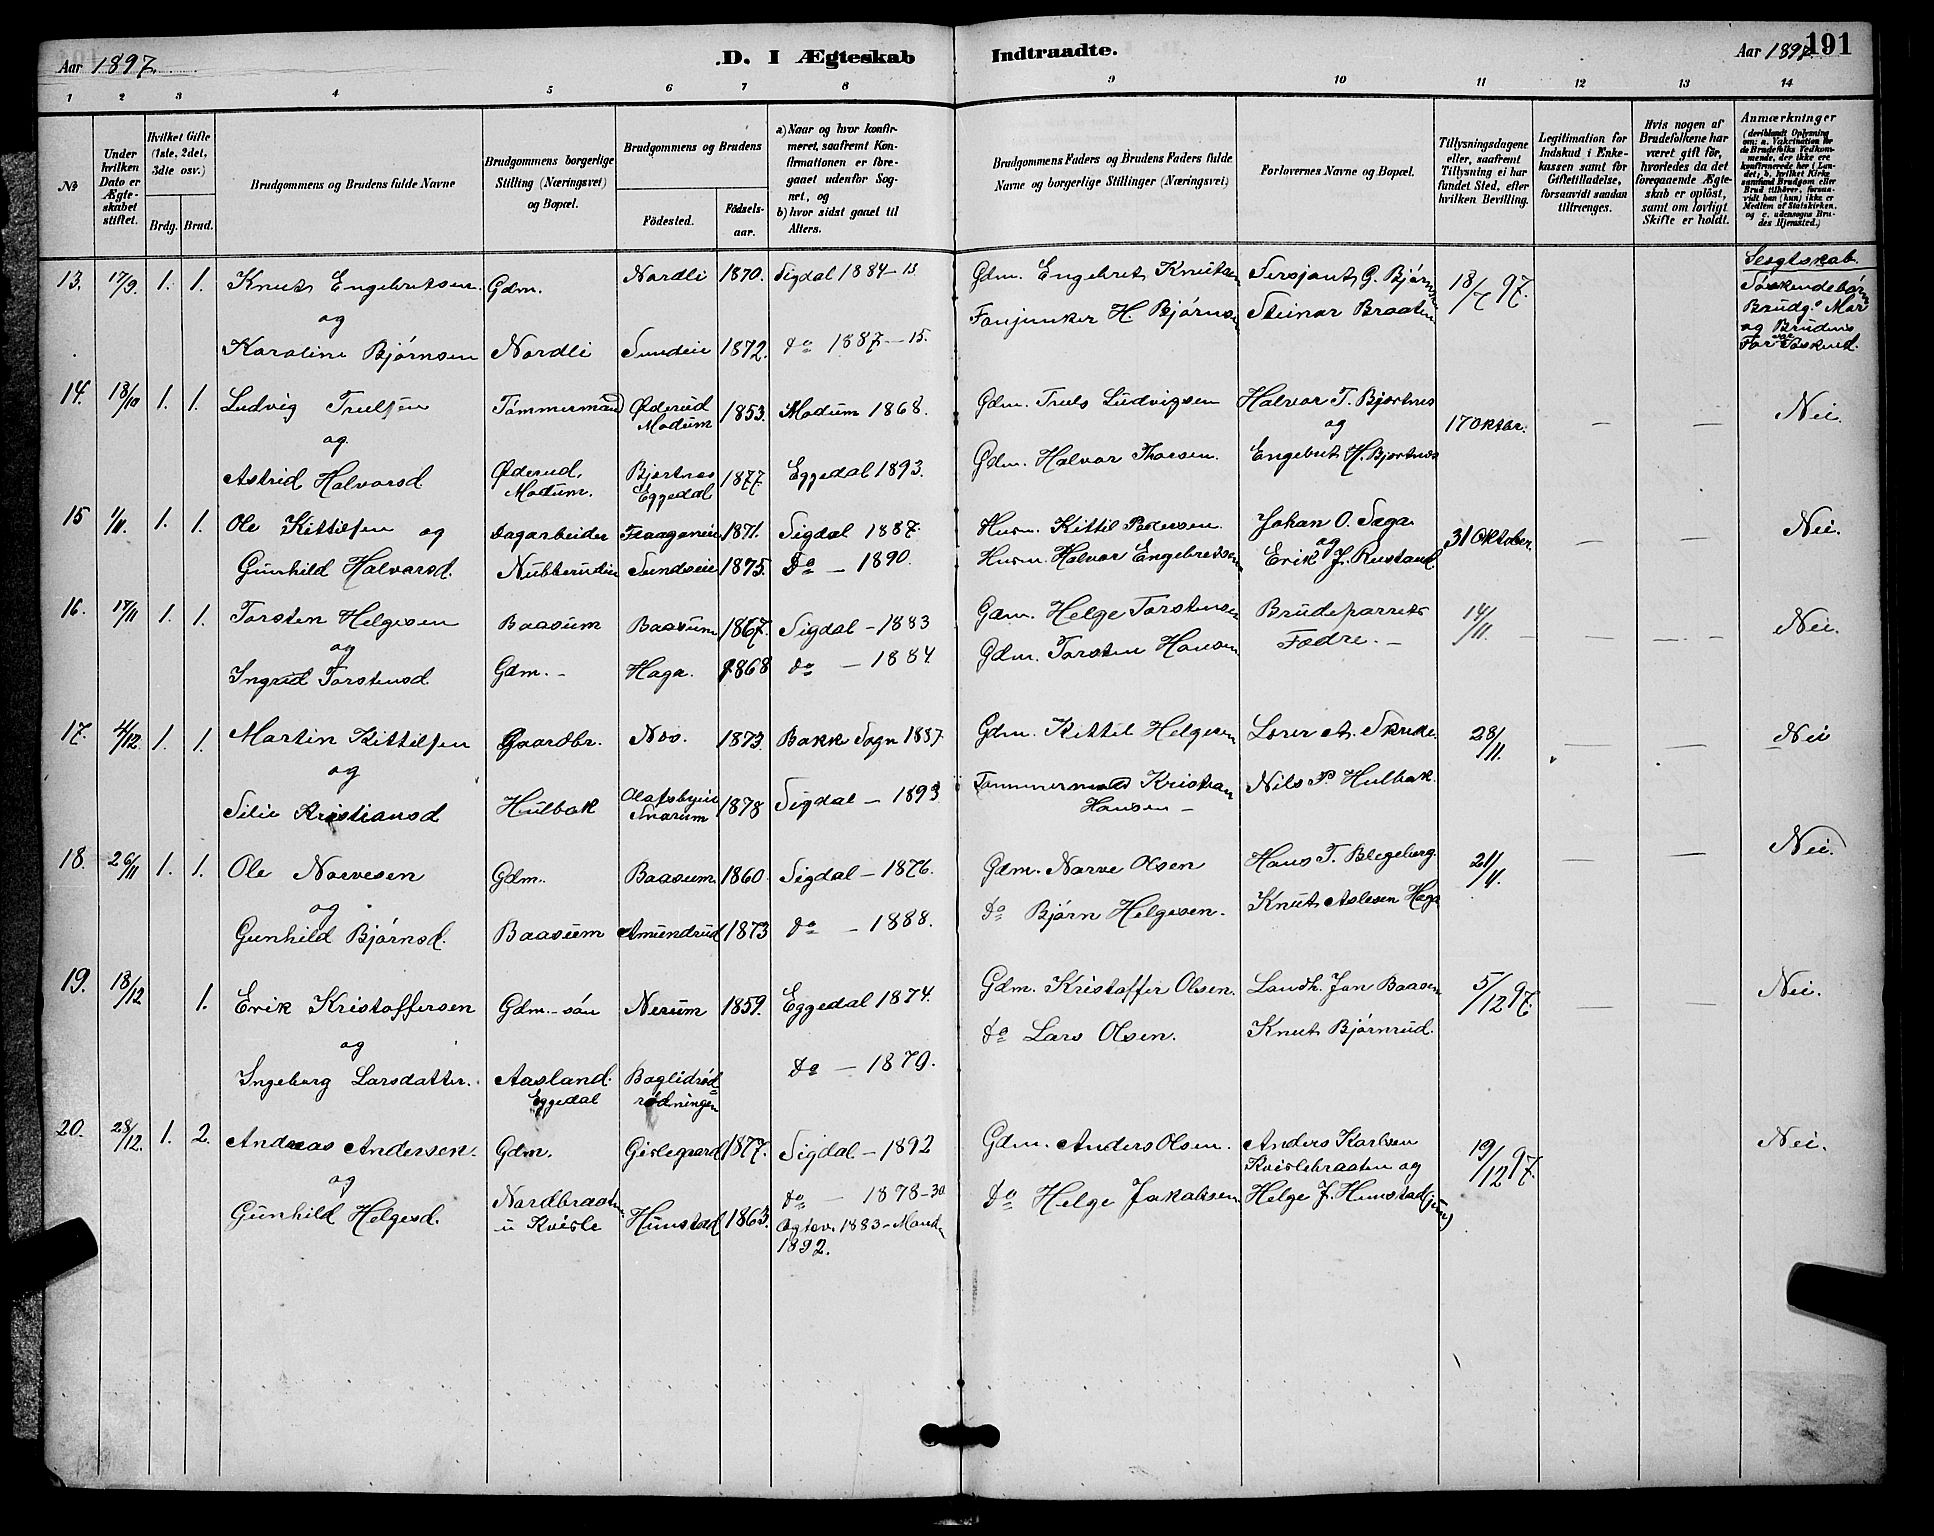 Aar 1897.
D. I Ægteskab Indtraadte.
Aar 1897. 191
1 2 3 4 5 6 7 8 9 10 11 12 13 14
No
Under hvilken Dato er Ægteskabet stiftet.
Hvilket Gifte (1ste, 2det, 3die osv.)
Brdg. Brud.
Brudgommens og Brudens fulde Navne
Brudgommens borgerlige Stilling (Næringsvei) og Bopæl.
Brudgommens og Brudens
Födested.
Födselsaar.
a) Naar og hvor konfirmeret, saafremt Konfirmationen er foregaaet udenfor Sognet, og
b) hvor sidst gaaet til Alters.
Brudgommens Faders og Brudens Faders fulde Navne og borgerlige Stillinger (Næringsvei)
Forlovernes Navne og Bopæl.
Tillysningsdagene eller, saafremt Tillysning ei har fundet Sted, efter hvilken Bevilling.
Legitimation for Indskud i Enkekassen samt for Giftetilladelse, forsaavidt saadan tiltrænges.
Hvis nogen af Brudefolkene har været gift för, hvorledes da det foregaaende Ægteskab er oplöst, samt om lovligt Skifte er holdt.
Anmærkninger
(deriblandt Oplysning om: a. Vakcination for de Brudefolks Vedkommende, der ikke ere konfirmerede her i Landet, b. hvilket Kirkesamfund Brudgom eller Brud tilhører, forsaavidt han (hun) ikke er Medlem af Statskirken, og c. udensogns Brudes Hjemsted.)
13. 17/9. 1. 1. Knut Engebretsen Gdm. Nordli 1870. Sigdal 1884-13 Gdm. Engebret Knutsen Sersjant G. Bjørnsen 18/7 97. Slegtskab.
og
Karoline Bjørnsen Nordli Sundeie 1872. do 1887-15. Fanjunker H. Bjørnsen Steinar Braaten
Søskendebørn
Brudg.s Mor
og Brudens
Far var Søskend.
14. 13/10 1. 1. Ludvig Trulsen Tømmermand Øderud Modum 1853. Modum 1868. Gdm. Truls Ludvigsen Halvor T. Bjørtnes 17 Oktbr. — — Nei.
og og
Astrid Halvorsd. Øderud, Modum. Bjørtnes Eggedal 1877. Eggedal 1893. Gdm. Halvor Thoresen. Engebret H. Bjørtnes
15 1/11. 1. 1. Ole Kittilsen og Dagarbeider Flaaganeie 1871. Sigdal 1887. Husm. Kittil Pedersen. Johan O. Saga. 31 Oktober. — — Nei.
og
Gunhild Halvorsd. Nubberudeie Sundseie 1875. Do — 1890. Husm. Halvor Engebretsen Erik J. Rustand
16. 17/11 1. 1. Torsten Helgesen Baasum Baasum 1867. Sigdal - 1883 Gdm. Helge Torstensen Brudeparrets 14/11. — — — Nei.
og
Ingrid Torstensd. Gdm. - Haga. 1868 do — 1884 Gdm. Torsten Hansen Fædre. —
17. 4/12. 1. 1. Martin Kittilsen Gaardbr. Nos. 1873. Bakk Sogn 1887. Gdm. Kittil Helgesen Lærer A. Skrude. 28/11. — — Nei
og
Silie Kristiansd Hulbak Olafsbyeie Snarum 1878 Sigdal — 1893 Tømmermand Kristian Hansen — Nils P. Hulbak.
18. 26/11 1. 1. Ole Narvesen Gdm. Baasum. 1860. Sigdal — 1876. Gdm. Narve Olsen Hans T. Blegeberg. 21/11. — — Nei.
og
Gunhild Bjørnsd. Baasum Amundrud 1873 do — 1888. do Bjørn Helgesen. Knut Aslesen Haga
19. 18/12 1. Erik Kristoffersen Gdm.-søn Nerum 1859. Eggedal 1874. Gdm. Kristoffer Olsen. Landh. Jan Baasen 5/12 97. — — Nei.
og
Ingeborg Larsdatter. Aasland. Eggedal Boglidrød-rødningen do — 1870. do Lars Olsen. Knut Bjørnrud.
20. 28/12. 1. 2. Andreas Andersen. Gdm. Gislegaard 1877. Sigdal — 1892 Gdm. Anders Olsen. Anders Karlsen 19/12 97. Nei.
Kvislebraaten og
og
Gunhild Helgesd. Nordbraaten u Kvisle Hunstad 1863. do — 1878-30 do Helge Jakobsen. Helge J. Hunstad (jun)
1892.